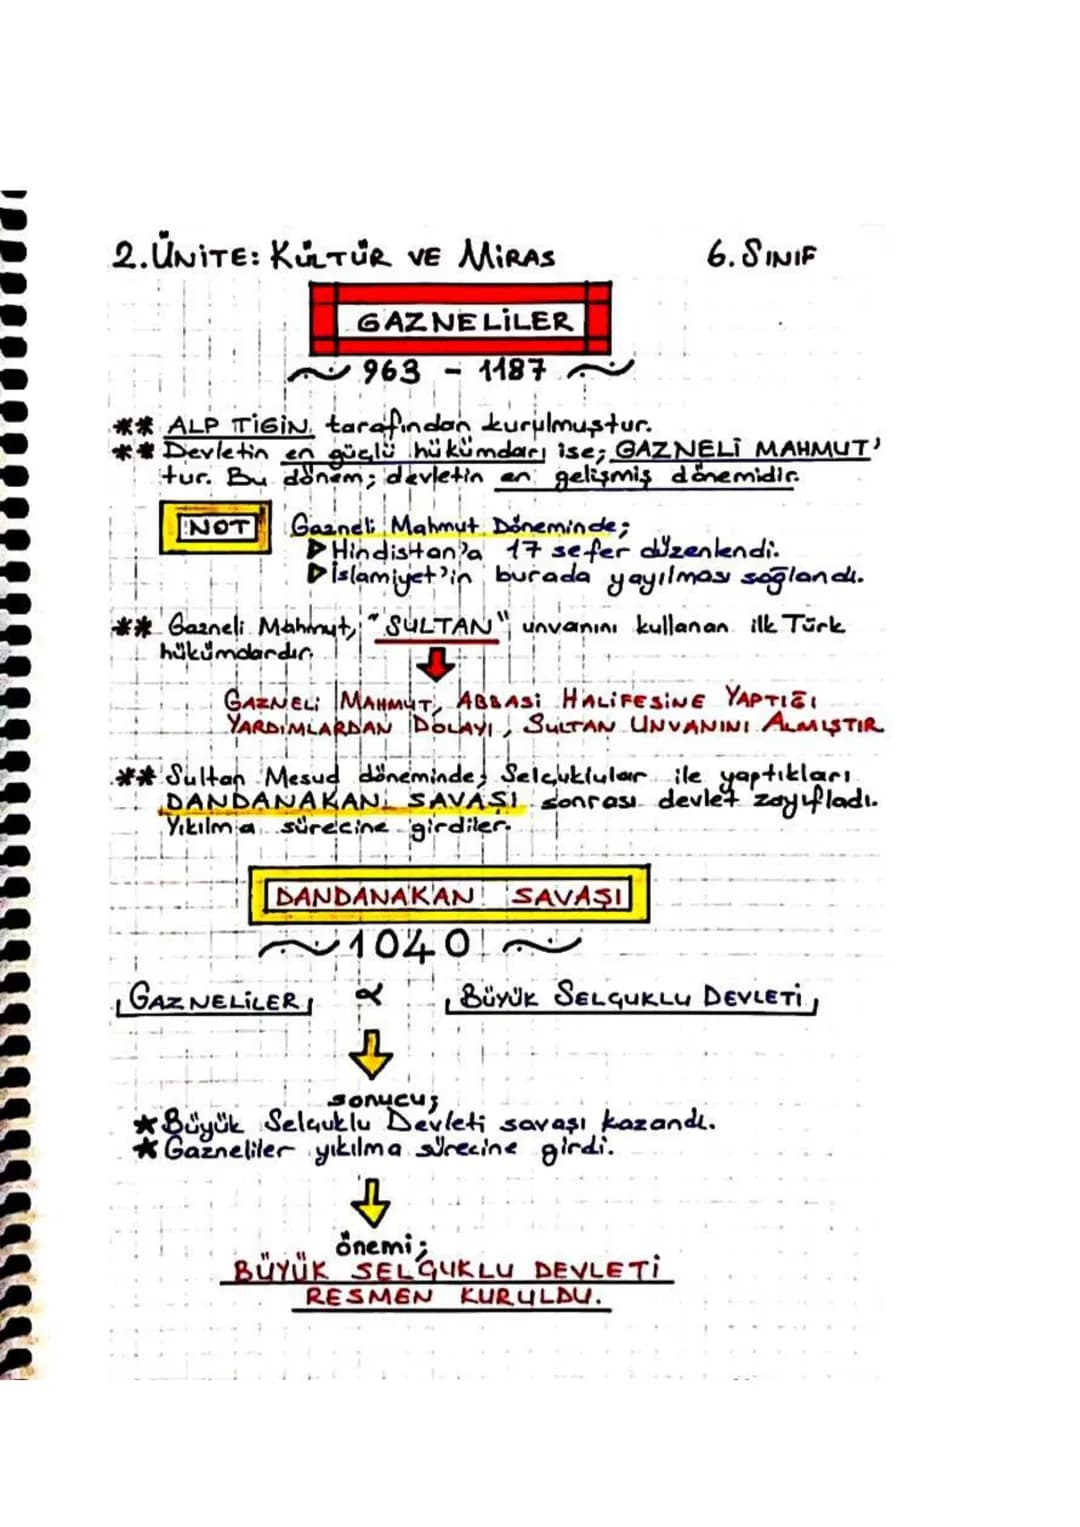 2.ÜNİTE: KÜLTÜR VE MİRAS 6.SINIF
GAZNELİLER
963 - 1187
** ALP TİGİN tarafından kurulmuştur.
** Devletin en güçlü hükümdarı ise; GAZNELİ MAHMUT'
tur. Bu dönem; devletin en gelişmiş dönemidir.
NOT Gazneli Mahmut Döneminde;
Hindistan'a 17 sefer düzenlendi.
İslamiyet'in burada yayılması sağlandı.
** Gazneli Mahmut, "SULTAN" unvanını kullanan ilk Türk
hükümdardır.
GAZNELİ MAHMUT, ABBASİ HALİFESİNE YAPTIĞI
YARDIMLARDAN DOLAYI, SULTAN UNVANINI ALMIŞTIR
** Sultan Mesud döneminde; Selçuklular ile yaptıkları
DANDANAKAN SAVAŞI sonrası devlet zayıfladı.
Yıkılma sürecine girdiler.
DANDANAKAN SAVAŞI
1040
GAZNELİLER α BÜYÜK SELÇUKLU DEVLETİ
sonucu;
★ Büyük Selçuklu Devleti savaşı kazandı.
★ Gazneliler yıkılma sürecine girdi.
önemi;
BÜYÜK SELÇUKLU DEVLETİ
RESMEN KURULDU.